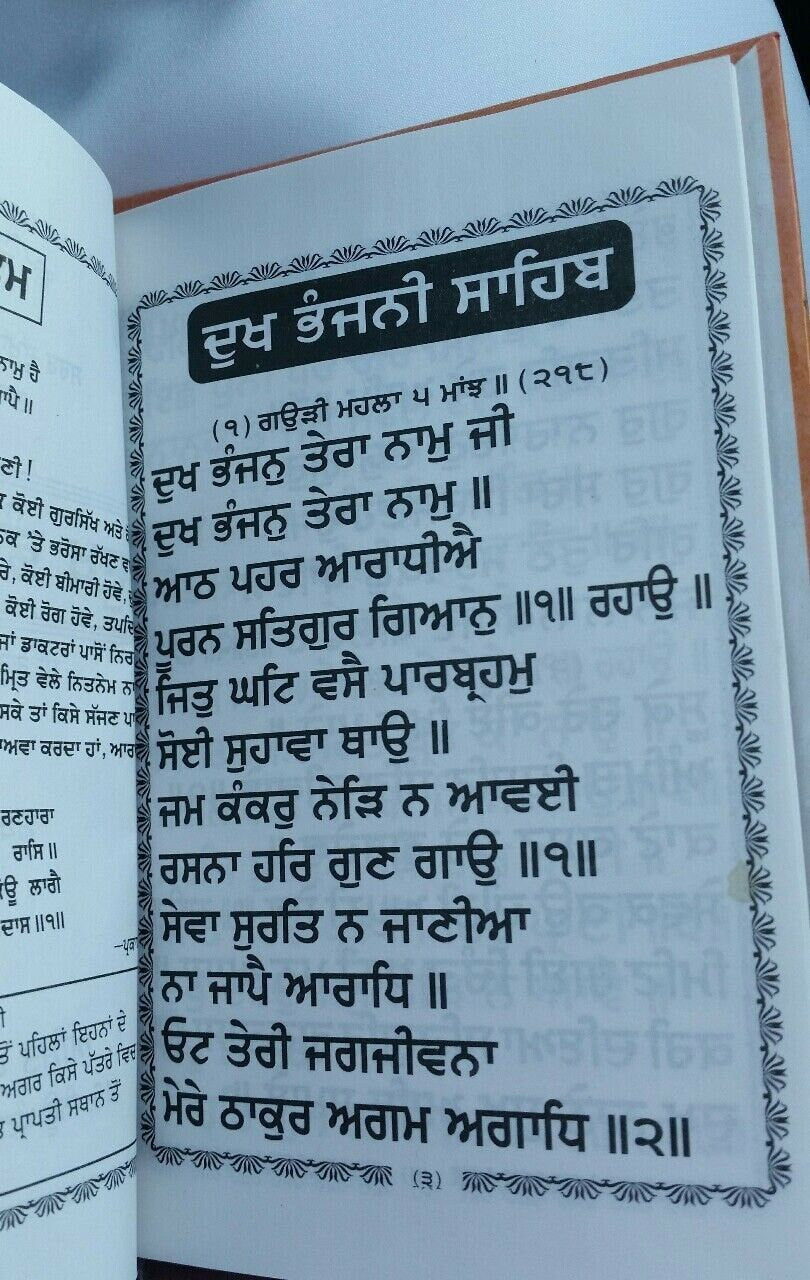 ਨਾਮੁ ਹੈ
ਕੋਈ ਗੁਰਸਿੱਖ ਅਤੇ
'ਤੇ ਭਰੋਸਾ ਰੱਖਣ
ਕੋਈ ਬੀਮਾਰੀ ਹੋਵੇ,
ਕੋਈ ਰੋਗ ਹੋਵੇ,
ਜਾਂ ਡਾਕਟਰਾਂ ਪਾਸੋਂ
ਵੇਲੇ ਨਿਤਨੇਮ
ਸਕੇ ਤਾਂ ਕਿਸੇ ਸੱਜਣ
ਕਰਦਾ ਹਾਂ,
ਰਾਸਿ॥
ਲਾਗੈ
ਦਾਸ॥੧॥
ਤੋਂ ਪਹਿਲਾਂ ਇਹਨਾਂ ਦੇ
ਅਗਰ ਕਿਸੇ ਪੱਤਰੇ ਵਿਚ
ਪ੍ਰਾਪਤੀ ਸਥਾਨ ਤੋਂ
ਦੁਖ ਭੰਜਨੀ ਸਾਹਿਬ
(੧) ਗਉੜੀ ਮਹਲਾ ੫ ਮਾਂਝ॥ (੨੧੮)
ਦੁਖ ਭੰਜਨੁ ਤੇਰਾ ਨਾਮੁ ਜੀ
ਦੁਖ ਭੰਜਨੁ ਤੇਰਾ ਨਾਮੁ ॥
ਆਠ ਪਹਰ ਆਰਾਧੀਐ
ਪੂਰਨ ਸਤਿਗੁਰ ਗਿਆਨੁ ॥੧॥ ਰਹਾਉ ॥
ਜਿਤੁ ਘਟਿ ਵਸੈ ਪਾਰਬ੍ਰਹਮੁ
ਸੋਈ ਸੁਹਾਵਾ ਥਾਉ ॥
ਜਮ ਕੰਕਰੁ ਨੇੜਿ ਨ ਆਵਈ
ਰਸਨਾ ਹਰਿ ਗੁਣ ਗਾਉ ॥੧॥
ਸੇਵਾ ਸੁਰਤਿ ਨ ਜਾਣੀਆ
ਨਾ ਜਾਪੈ ਆਰਾਧਿ ॥
ਓਟ ਤੇਰੀ ਜਗਜੀਵਨਾ
ਮੇਰੇ ਠਾਕੁਰ ਅਗਮ ਅਗਾਧਿ ॥੨॥
(੩)